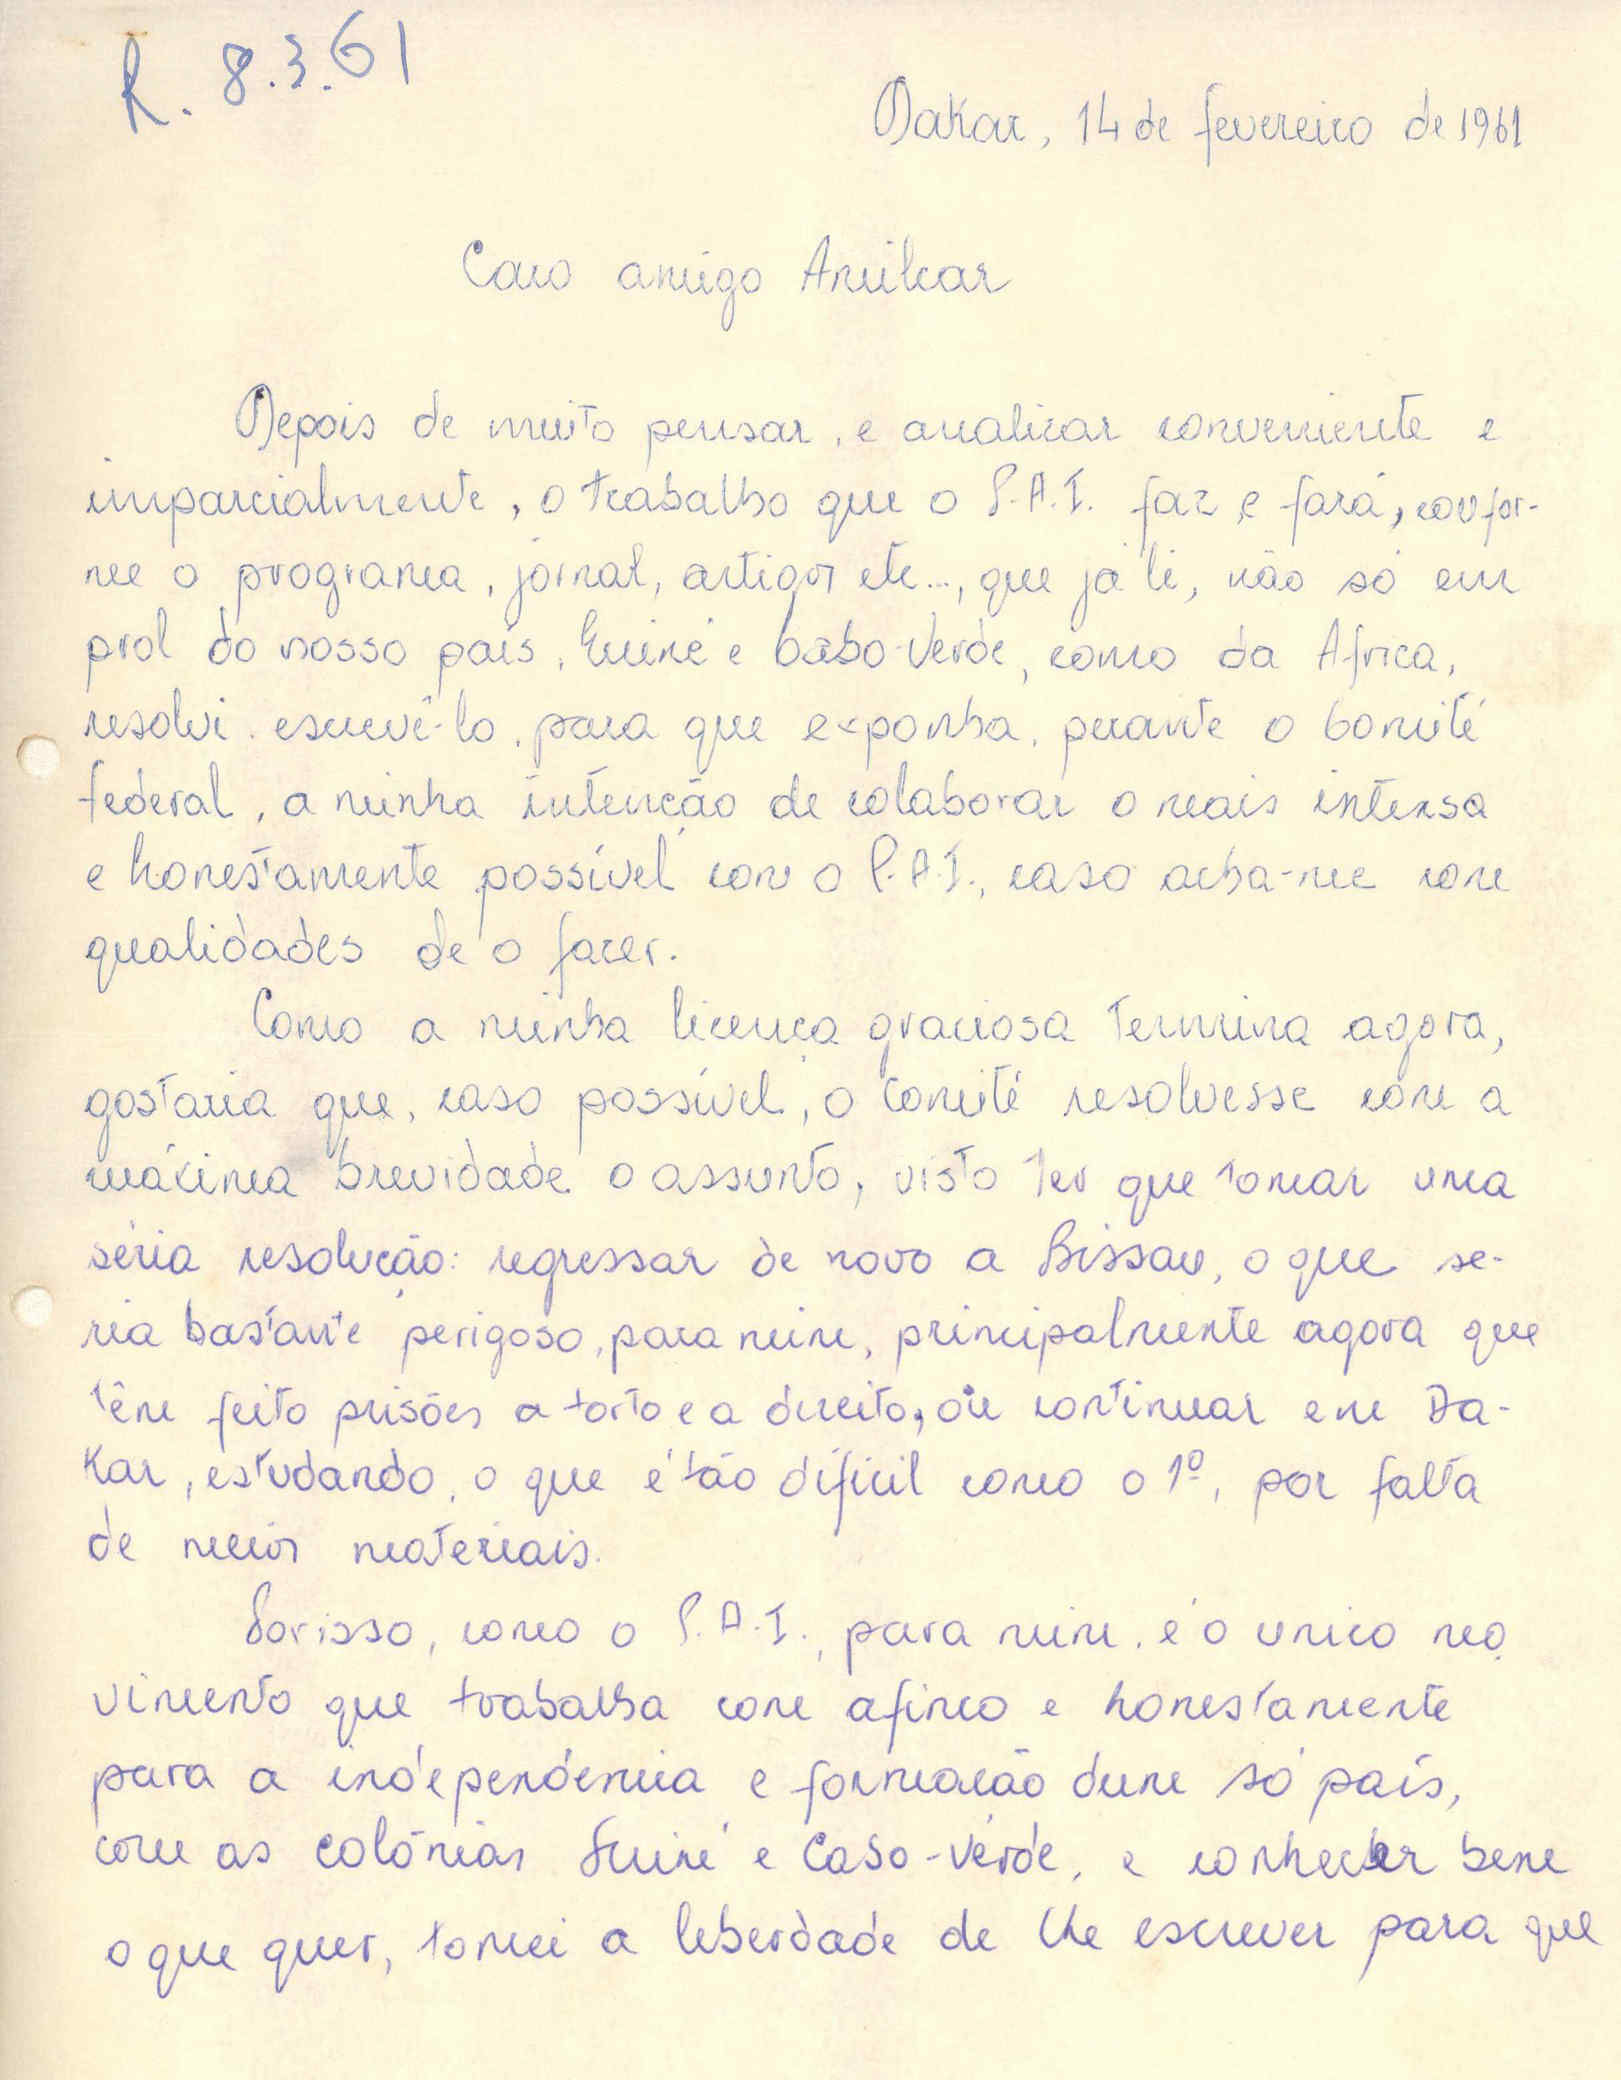 R. 8.3.61
Dakar, 14 de fevereiro de 1961
Caro amigo Amilcar
Depois de muito pensar, e analizar conveniente e
imparcialmente, o trabalho que o P.A.I. faz e fará, confor-
me o programa, jornal, artigos etc..., que já li, não só em
prol do nosso país, Guiné e Cabo-Verde, como da Africa,
resolvi escrevê-lo, para que exponha, perante o Comité
federal, a minha intenção de colaborar o mais intensa
e honestamente possível com o P.A.I., caso acha-me com
qualidades de o fazer.
Como a minha licença graciosa termina agora,
gostaria que, caso possível, o Comité resolvesse com a
máxima brevidade o assunto, visto ter que tomar uma
séria resolução: regressar de novo a Bissau, o que se-
ria bastante perigoso, para mim, principalmente agora que
têm feito prisões a torto e a direito, ou continuar em Da-
kar, estudando, o que é tão difícil como o 1º, por falta
de meios materiais.
Porisso, como o P.A.I., para mim, é o unico mo
vimento que trabalha com afinco e honestamente
para a independência e formação dum só país,
com as colónias Guiné e Cabo-Verde, e conhecer bem
o que quer, tomei a leberdade de lhe escrever para que